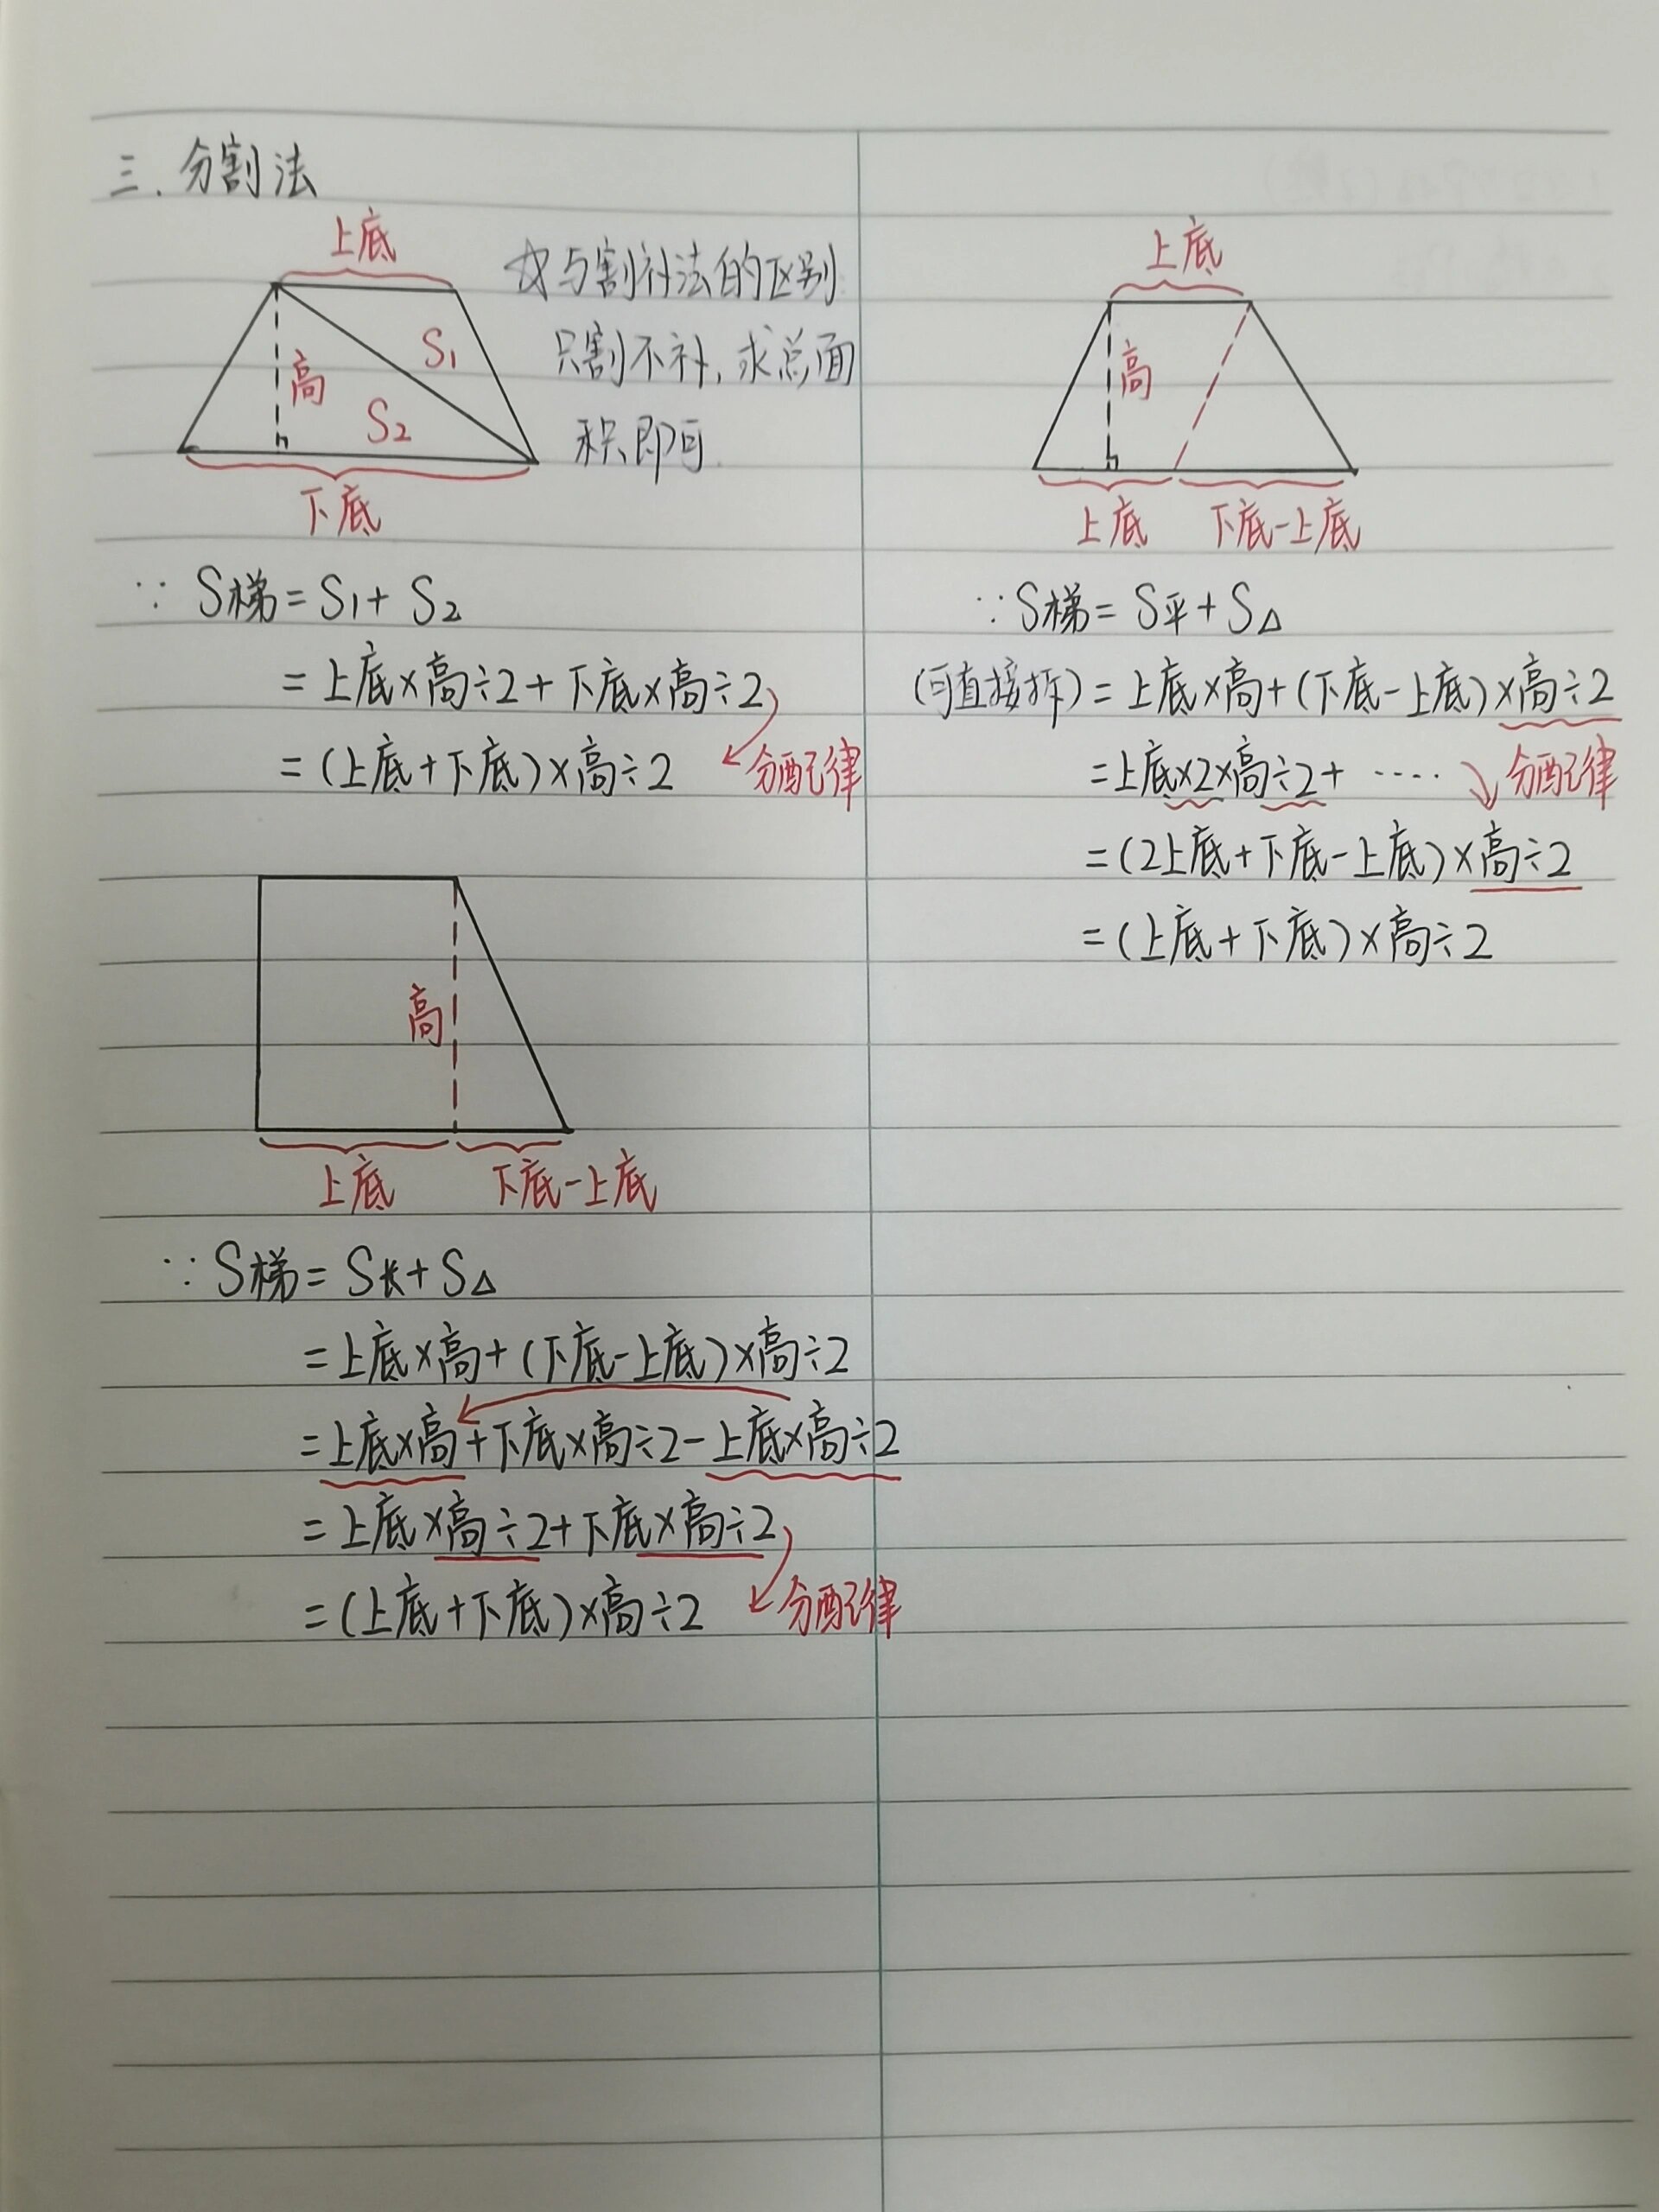 三.分割法
上底
☆与割补法的区别
只割不补,求总面
积即可.
S1
高
S2
下底
∵ S梯=S1+S2
=上底×高÷2+下底×高÷2
=(上底+下底)×高÷2 分配律
高
上底 下底-上底
∵ S梯=S长+S△
=上底×高+(下底-上底)×高÷2
=上底×高+下底×高÷2-上底×高÷2
=上底×高÷2+下底×高÷2
=(上底+下底)×高÷2 分配律
上底
高
上底 下底-上底
∵S梯=S平+S△
(可直接拆)=上底×高+(下底-上底)×高÷2
=上底×2×高÷2+····· 分配律
=(2上底+下底-上底)×高÷2
=(上底+下底)×高÷2